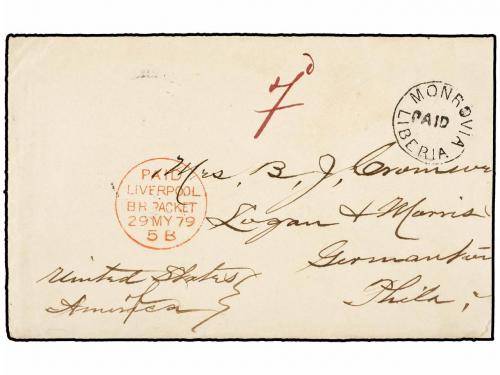 7d
MONROVIA
PAID
LIBERIA
PAID
LIVERPOOL
BR. PACKET
29 MY 79
5 B
Mrs. B. J.
Logan & Morris
Germantown
Phila;
United States
America